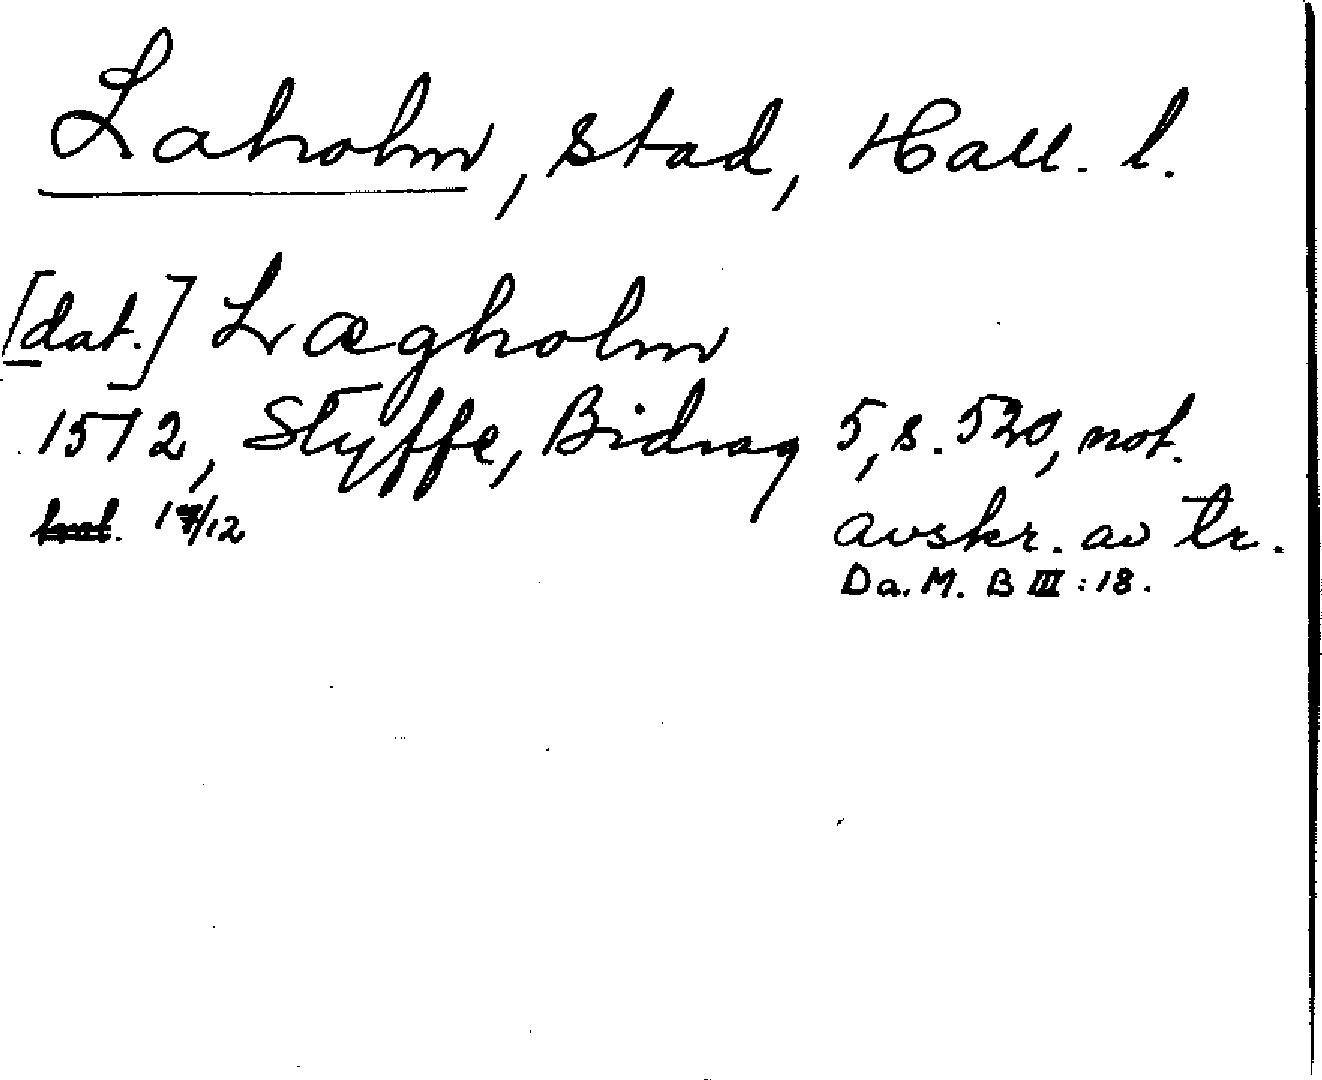 Laholm, stad, Hall. l.
[dat.] Lægholm
1512, Styffe, Bidrag 5, s. 520, not.
17/12 avskr. av tr.
Da. M. B III : 18.